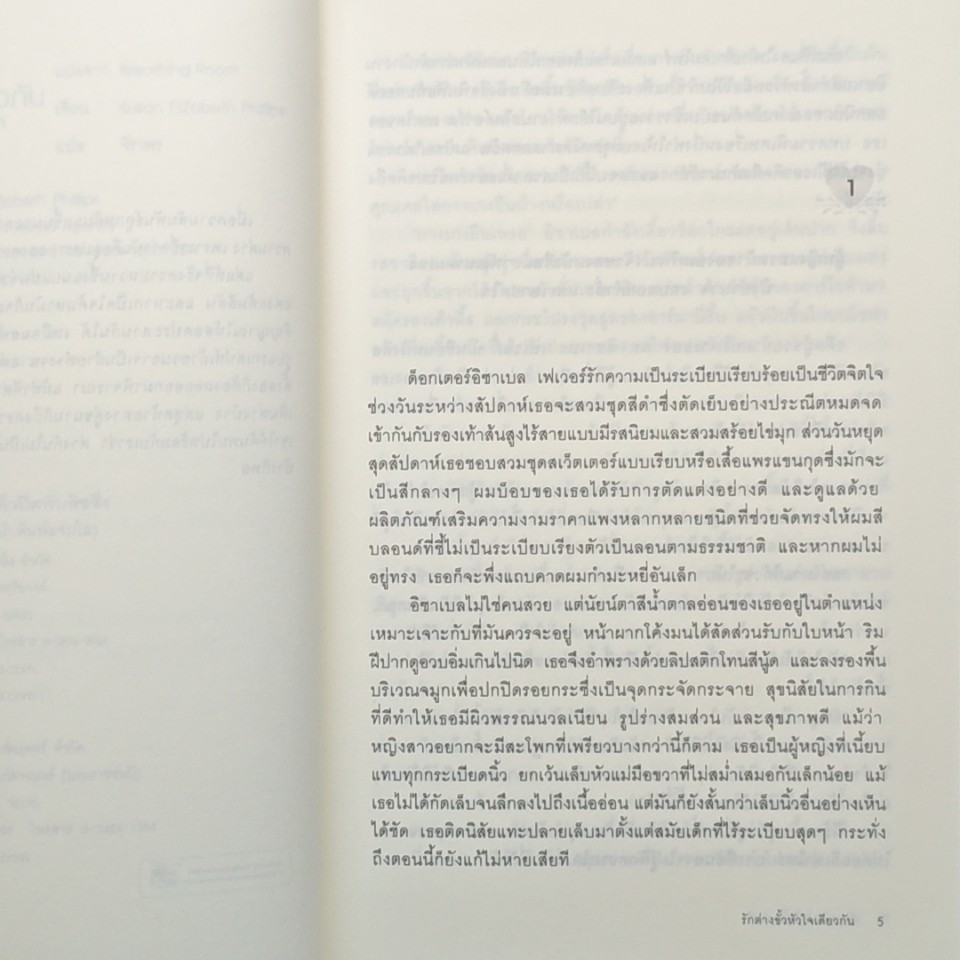 1
ด็อกเตอร์อิซาเบล เฟเวอร์รักความเป็นระเบียบเรียบร้อยเป็นชีวิตจิตใจ
ช่วงวันระหว่างสัปดาห์เธอจะสวมชุดสีดำซึ่งตัดเย็บอย่างประณีตหมดจด
เข้ากันกับรองเท้าส้นสูงไร้สายแบบมีรสนิยมและสวมสร้อยไข่มุก ส่วนวันหยุด
สุดสัปดาห์เธอชอบสวมชุดสเว็ตเตอร์แบบเรียบหรือเสื้อแพรแขนกุดซึ่งมักจะ
เป็นสีกลางๆ ผมบ็อบของเธอได้รับการตัดแต่งอย่างดี และดูแลด้วย
ผลิตภัณฑ์เสริมความงามราคาแพงหลากหลายชนิดที่ช่วยจัดทรงให้ผมสี
บลอนด์ที่ชี้ไม่เป็นระเบียบเรียงตัวเป็นลอนตามธรรมชาติ และหากผมไม่
อยู่ทรง เธอก็จะพึ่งแถบคาดผมกำมะหยี่อันเล็ก
อิซาเบลไม่ใช่คนสวย แต่นัยน์ตาสีน้ำตาลอ่อนของเธออยู่ในตำแหน่ง
เหมาะเจาะกับที่มันควรจะอยู่ หน้าผากโค้งมนได้สัดส่วนรับกับใบหน้า ริม
ฝีปากดูอวบอิ่มเกินไปนิด เธอจึงอำพรางด้วยลิปสติกโทนสีนู้ด และลงรองพื้น
บริเวณจมูกเพื่อปกปิดรอยกระซึ่งเป็นจุดกระจัดกระจาย สุขนิสัยในการกิน
ที่ดีทำให้เธอมีผิวพรรณนวลเนียน รูปร่างสมส่วน และสุขภาพดี แม้ว่า
หญิงสาวอยากจะมีสะโพกที่เพรียวบางกว่านี้ก็ตาม เธอเป็นผู้หญิงที่เนี้ยบ
แทบทุกกระเบียดนิ้ว ยกเว้นเล็บหัวแม่มือขวาที่ไม่สม่ำเสมอกันเล็กน้อย แม้
เธอไม่ได้กัดเล็บจนลึกลงไปถึงเนื้ออ่อน แต่มันก็ยังสั้นกว่าเล็บนิ้วอื่นอย่างเห็น
ได้ชัด เธอติดนิสัยแทะปลายเล็บมาตั้งแต่สมัยเด็กที่ไร้ระเบียบสุดๆ กระทั่ง
ถึงตอนนี้ก็ยังแก้ไม่หายเสียที
รักต่างขั้วหัวใจเดียวกัน 5